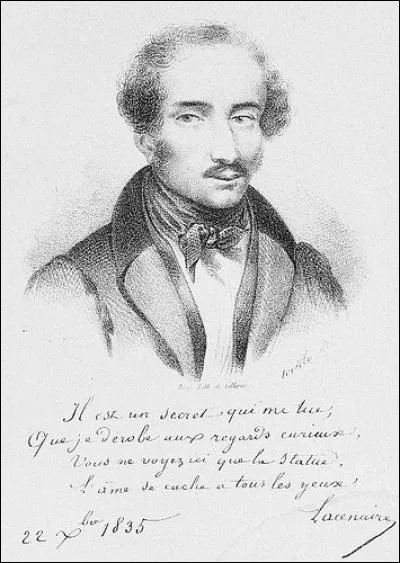 Imp. Lith. de
Il est un secret qui me tue,
Que je derobe aux regards curieux,
Vous ne voyez ici que la statue,
L'âme se cache a tous les yeux,
22 Xbre 1835
Lacenaire